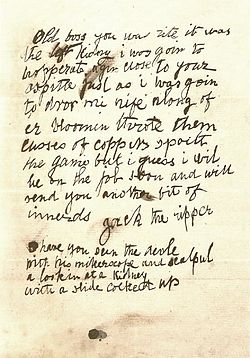 Old boss you was rite it was
the left kidny i was goin to
hopperate agin close to your
ospitle just as i was goin
to dror mi nife along of
er bloomin throte them
cusses of coppers spoilt
the game but i guess i wil
be on the job soon and will
send you another bit of
innerds
Jack the ripper
O have you seen the devle
with his mikerscope and scalpul
a lookin at a kidney
with a slide cocked up